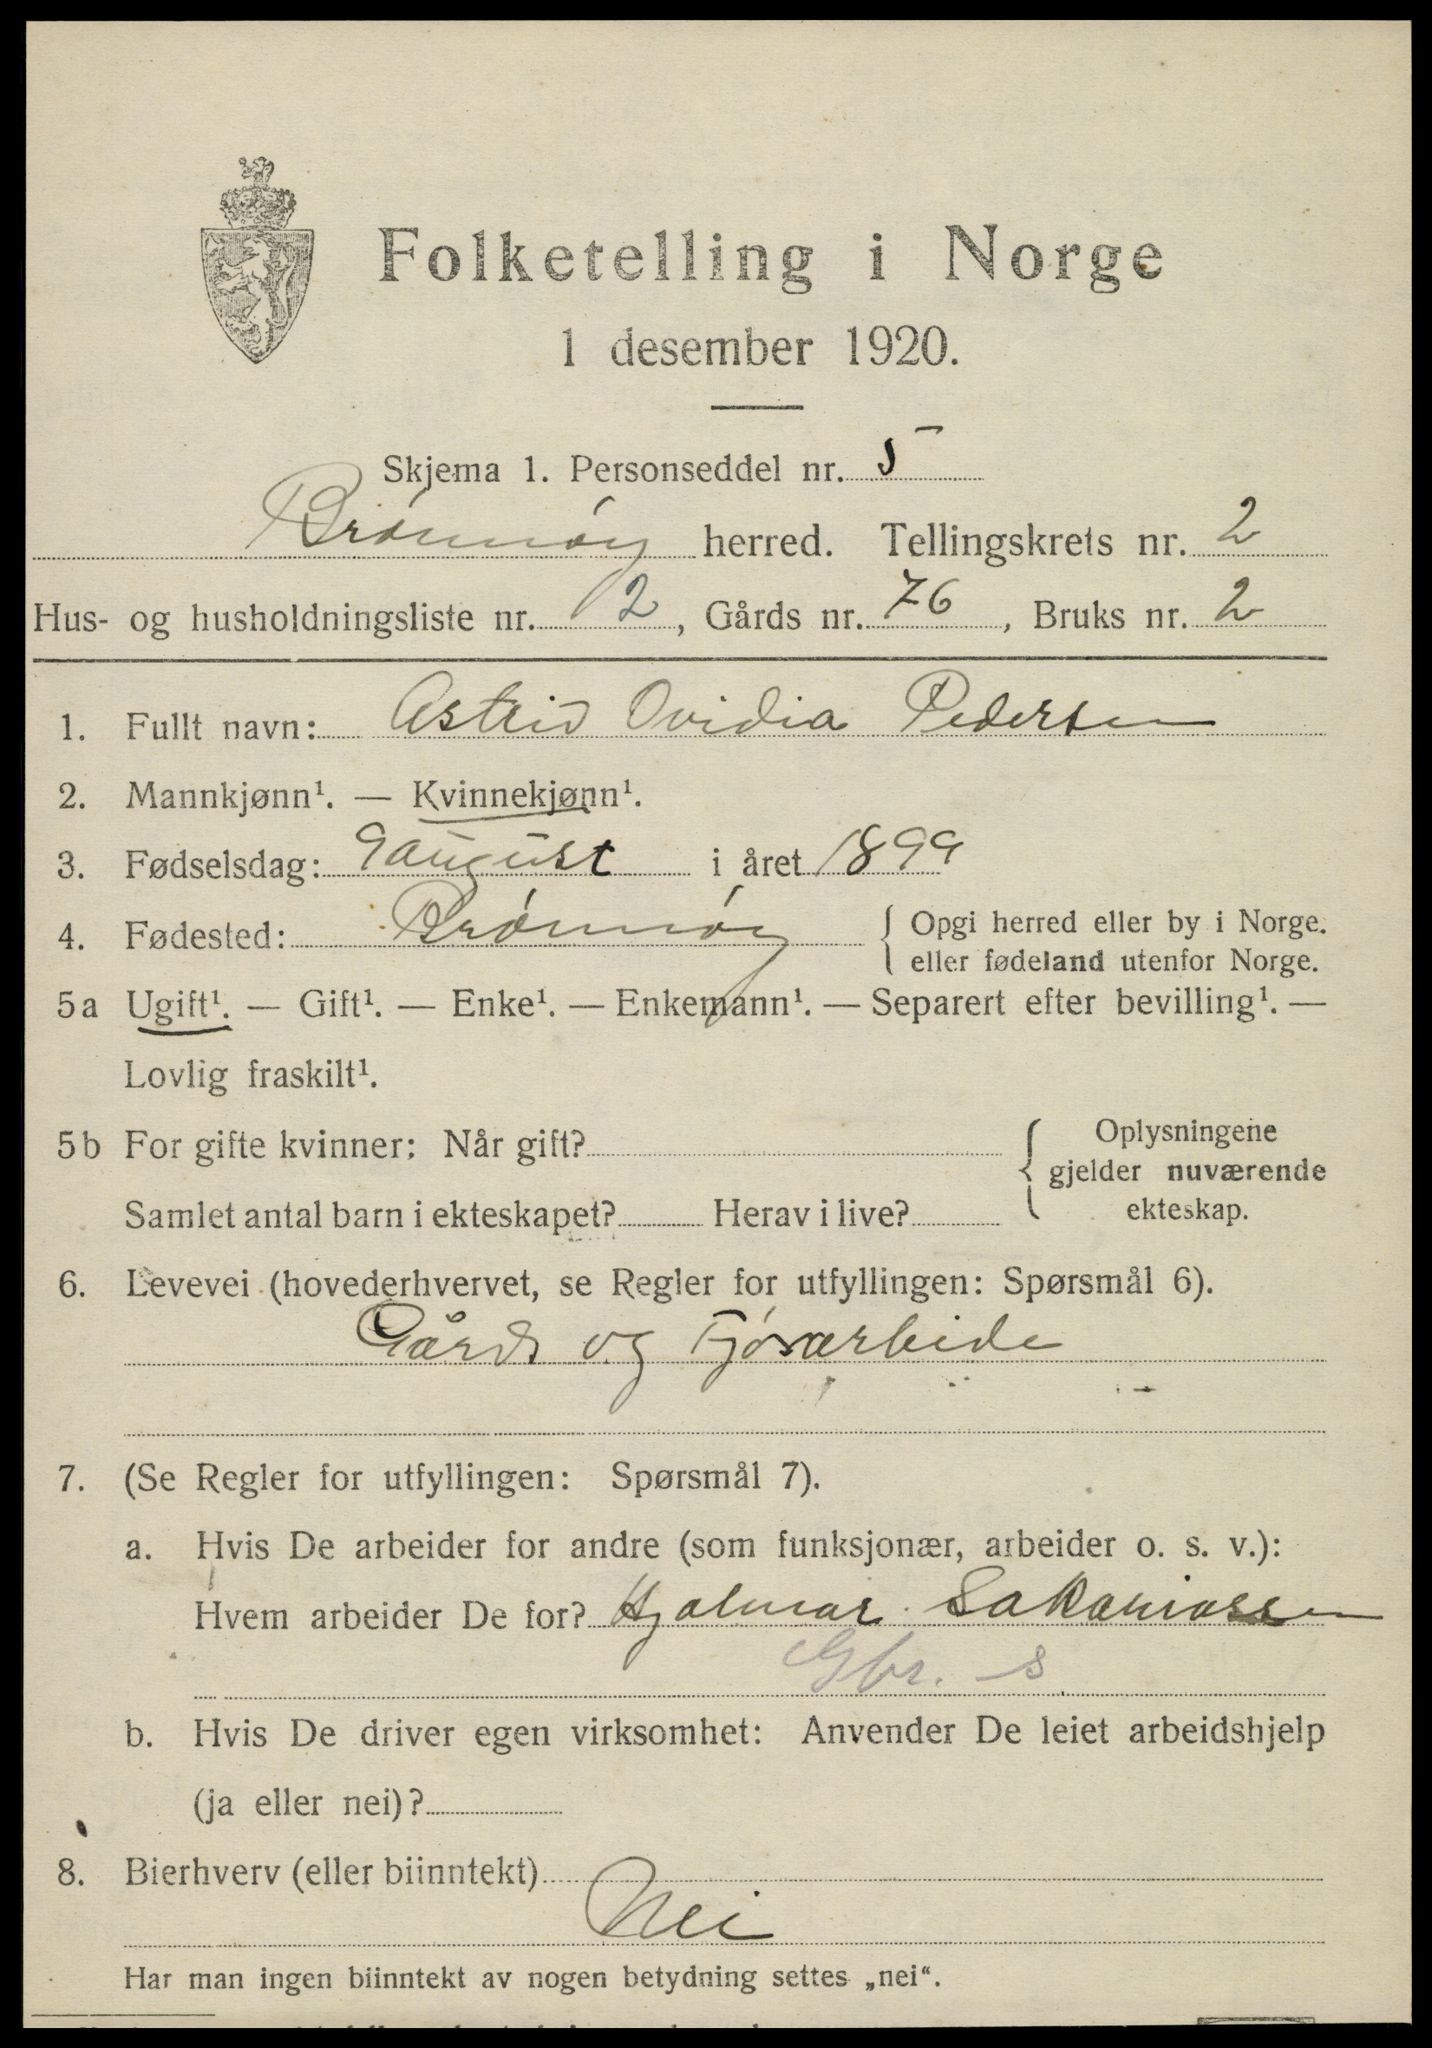 Folketelling i Norge
1 desember 1920.
Skjema 1. Personseddel nr. 5
Brønnøy herred. Tellingskrets nr. 2
Hus- og husholdningsliste nr. 2, Gårds nr. 76, Bruks nr. 2
1. Fullt navn: Astrid Ovidia Pedersen
2. Mannkjønn¹. — Kvinnekjønn¹.
3. Fødselsdag: 9 august i året 1899
4. Fødested: Brønnøy { Opgi herred eller by i Norge.
eller fødeland utenfor Norge.
5a Ugift¹. — Gift¹. — Enke¹. — Enkemann¹. — Separert efter bevilling¹. —
Lovlig fraskilt¹.
5b For gifte kvinner: Når gift? { Oplysningene
gjelder nuværende
Samlet antal barn i ekteskapet? Herav i live? ekteskap.
6. Levevei (hovederhvervet, se Regler for utfyllingen: Spørsmål 6).
Gårds og Fjósarbeide
7. (Se Regler for utfyllingen: Spørsmål 7).
a. Hvis De arbeider for andre (som funksjonær, arbeider o. s. v.):
Hvem arbeider De for? Hjalmar Sakariassen
Gbr. s
b. Hvis De driver egen virksomhet: Anvender De leiet arbeidshjelp
(ja eller nei)?
8. Bierhverv (eller biinntekt)
Nei
Har man ingen biinntekt av nogen betydning settes „nei“.